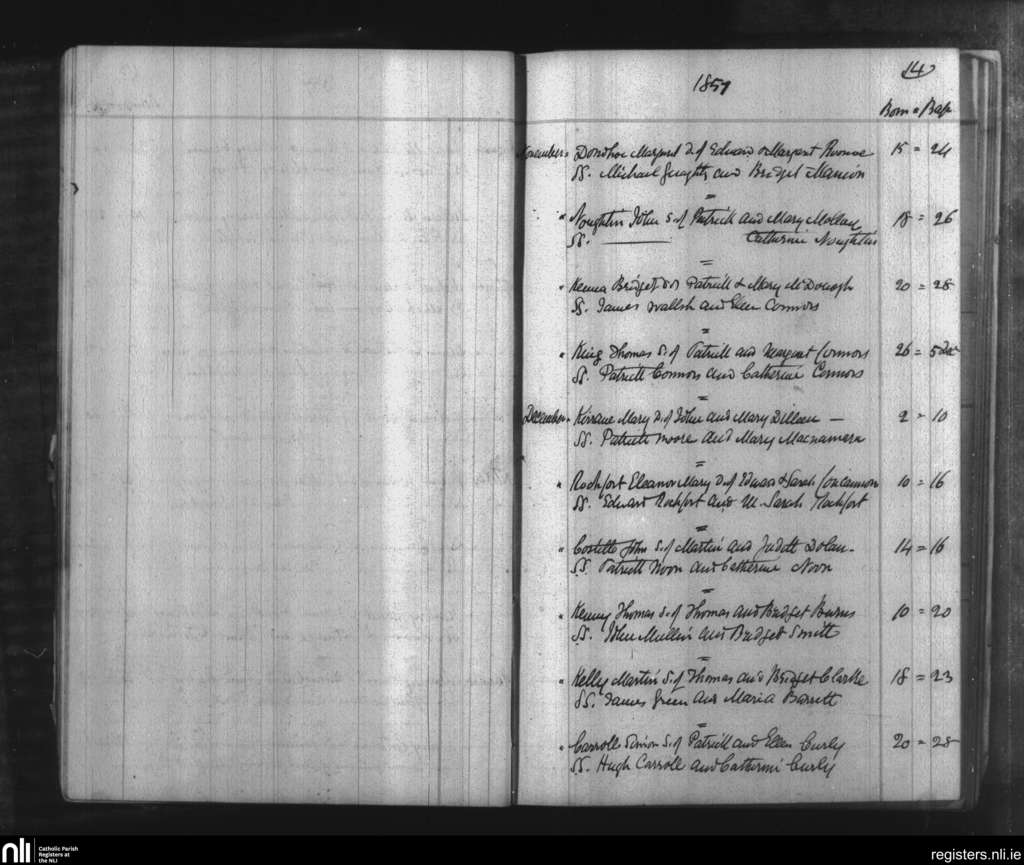 14
1857
Born = Bap
November = Donohoe Margaret D. of Edward & Margaret 15 = 24
SS. Michael Geraghty and Bridget Mannion
=
" Noughtin John S. of Patrick and Mary Molloy 18 = 26
SS. ——— Catherine Noughtin
=
" Kenna Bridget D. of Patrick & Mary McDonogh 20 = 28
SS. James Wallsh and Ellen Connors
=
" King Thomas S. of Patrick and Margaret Connors 26 = 5 Dec
SS. Patrick Connors and Catherine Connors
=
December = Kirrane Mary D. of John and Mary Dilleen — 2 = 10
SS. Patrick Moore and Mary Macnamara
=
" Rochfort Eleanor Mary D. of Edward & Sarah Concannon 10 = 16
SS. Edward Rochfort and M. Sarah Rochfort
=
" Costello John S. of Martin and Judith Dolan - 14 = 16
SS. Patrick Noon and Catherine Noon
=
" Kenny Thomas S. of Thomas and Bridget Burns 10 = 20
SS. John Mullin and Bridget Smith
=
" Kelly Martin S. of Thomas and Bridget Clarke 18 = 23
SS. James Green and Maria Barrett
=
" Carroll Simon S. of Patrick and Ellen Curly 20 = 28
SS. Hugh Carroll and Catherine Curly
nli
Catholic Parish
Registers at
the NLI
registers.nli.ie